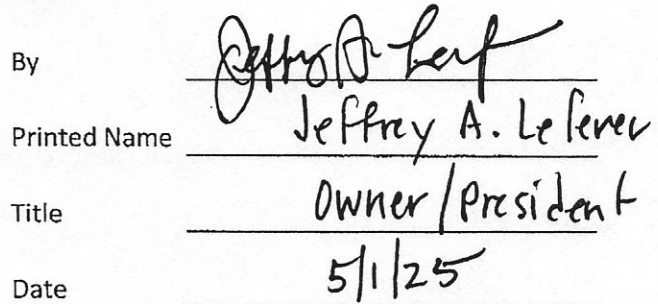 By Jeffrey A. Lef
Printed Name Jeffrey A. Lefever
Title Owner/President
Date 5/1/25